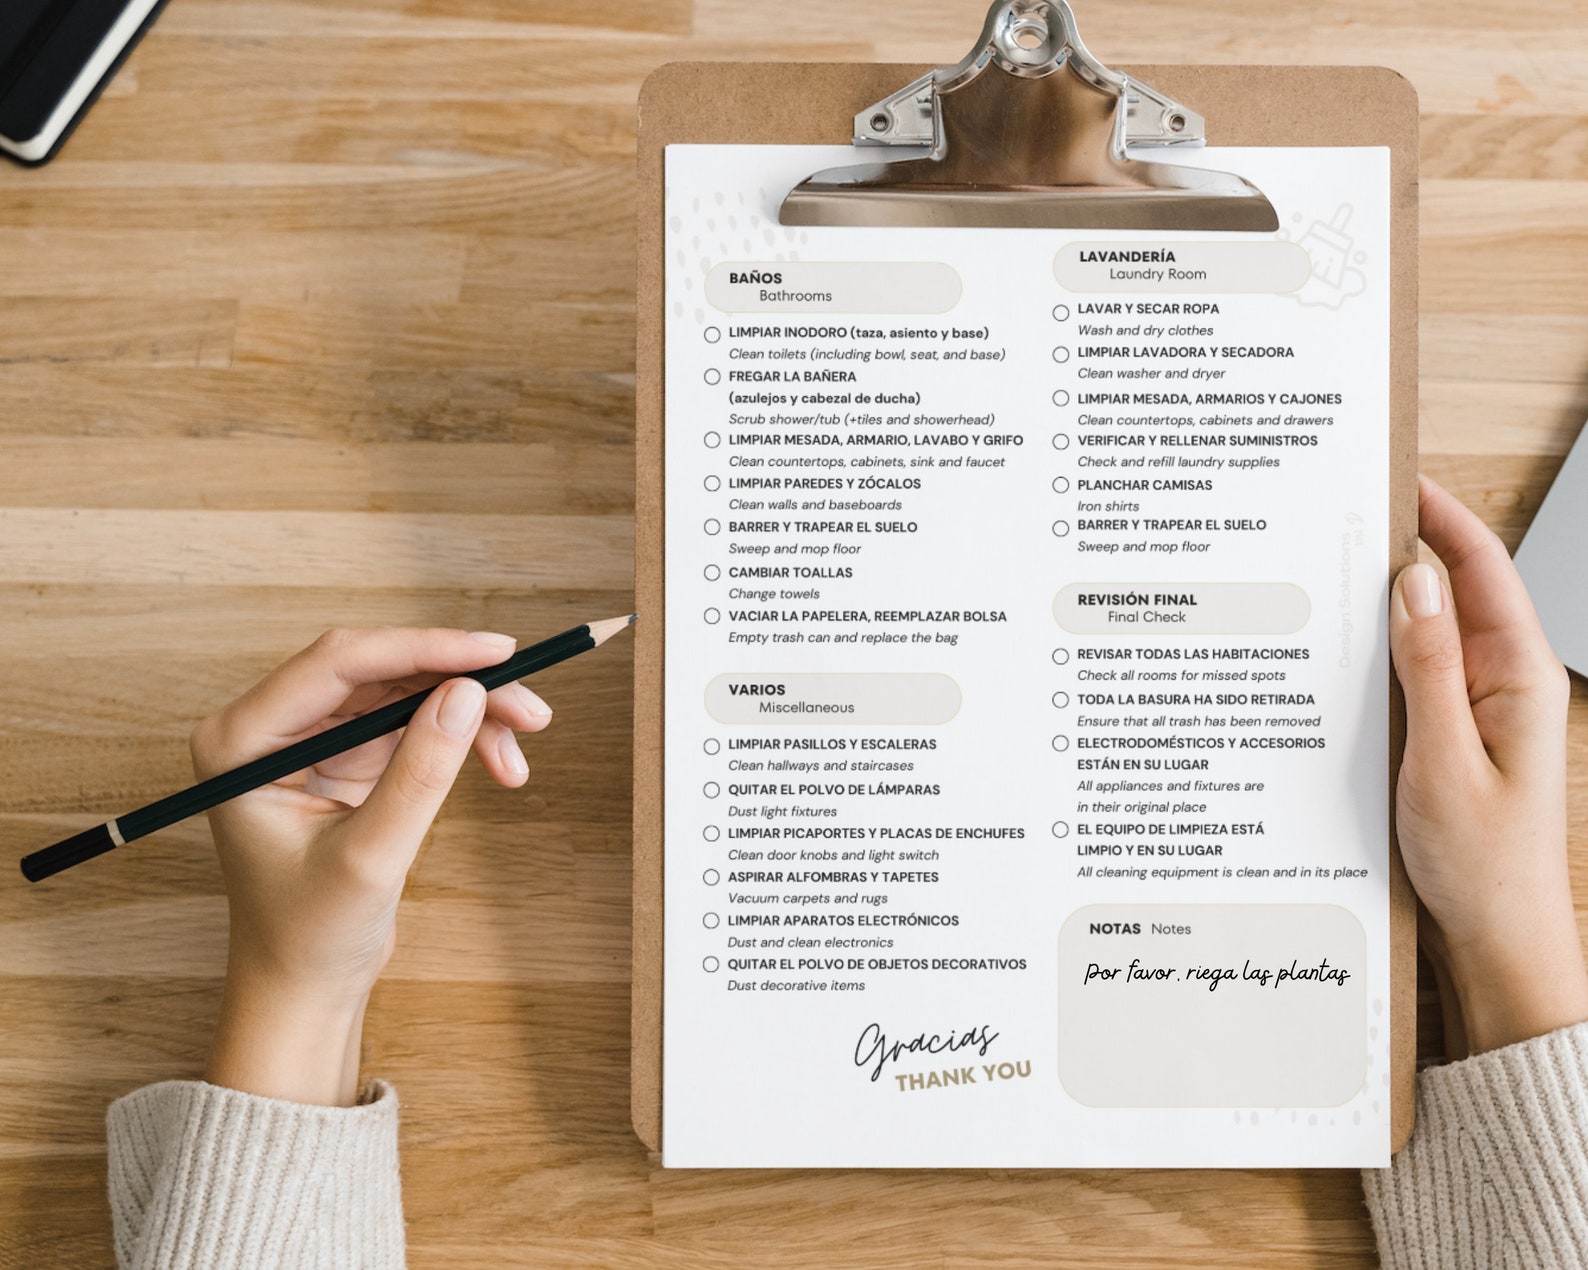 BAÑOS
Bathrooms
LIMPIAR INODORO (taza, asiento y base)
Clean toilets (including bowl, seat, and base)
FREGAR LA BAÑERA
(azulejos y cabezal de ducha)
Scrub shower/tub (+tiles and showerhead)
LIMPIAR MESADA, ARMARIO, LAVABO Y GRIFO
Clean countertops, cabinets, sink and faucet
LIMPIAR PAREDES Y ZÓCALOS
Clean walls and baseboards
BARRER Y TRAPEAR EL SUELO
Sweep and mop floor
CAMBIAR TOALLAS
Change towels
VACIAR LA PAPELERA, REEMPLAZAR BOLSA
Empty trash can and replace the bag
VARIOS
Miscellaneous
LIMPIAR PASILLOS Y ESCALERAS
Clean hallways and staircases
QUITAR EL POLVO DE LÁMPARAS
Dust light fixtures
LIMPIAR PICAPORTES Y PLACAS DE ENCHUFES
Clean door knobs and light switch
ASPIRAR ALFOMBRAS Y TAPETES
Vacuum carpets and rugs
LIMPIAR APARATOS ELECTRÓNICOS
Dust and clean electronics
QUITAR EL POLVO DE OBJETOS DECORATIVOS
Dust decorative items
Gracias
THANK YOU
LAVANDERÍA
Laundry Room
LAVAR Y SECAR ROPA
Wash and dry clothes
LIMPIAR LAVADORA Y SECADORA
Clean washer and dryer
LIMPIAR MESADA, ARMARIOS Y CAJONES
Clean countertops, cabinets and drawers
VERIFICAR Y RELLENAR SUMINISTROS
Check and refill laundry supplies
PLANCHAR CAMISAS
Iron shirts
BARRER Y TRAPEAR EL SUELO
Sweep and mop floor
REVISIÓN FINAL
Final Check
REVISAR TODAS LAS HABITACIONES
Check all rooms for missed spots
TODA LA BASURA HA SIDO RETIRADA
Ensure that all trash has been removed
ELECTRODOMÉSTICOS Y ACCESORIOS
ESTÁN EN SU LUGAR
All appliances and fixtures are
in their original place
EL EQUIPO DE LIMPIEZA ESTÁ
LIMPIO Y EN SU LUGAR
All cleaning equipment is clean and in its place
NOTAS Notes
Por favor, riega las plantas
Design Solutions
by